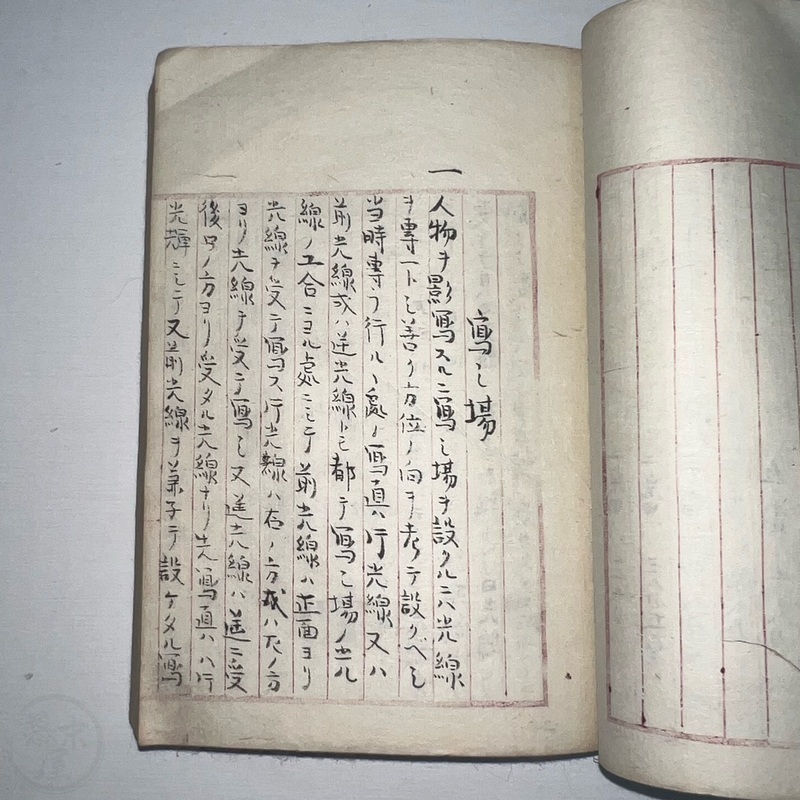 寫シ場
一 人物ヲ影寫スルニ寫シ場ヲ設クルニハ光線
ヲ專一トシ善ク方位ノ向ヲ考テ設クベシ
当時専ラ行ルヽ處ノ寫真ハ片光線又ハ
前光線或ハ逆光線トモ都テ寫シ場ノ光
線ノ工合ニヨル處ニシテ前光線ハ正面ヨリ
光線ヲ受テ寫ス片光線ハ右ノ方或ハ左ノ方
ヨリノ光線ヲ受テ寫シ又逆光線ハ逆ニ受
後ロノ方ヨリ受タル光線ナリ 寫真ハ 片
光 ニシテ又前光線ヲ兼子テ設ケタル寫